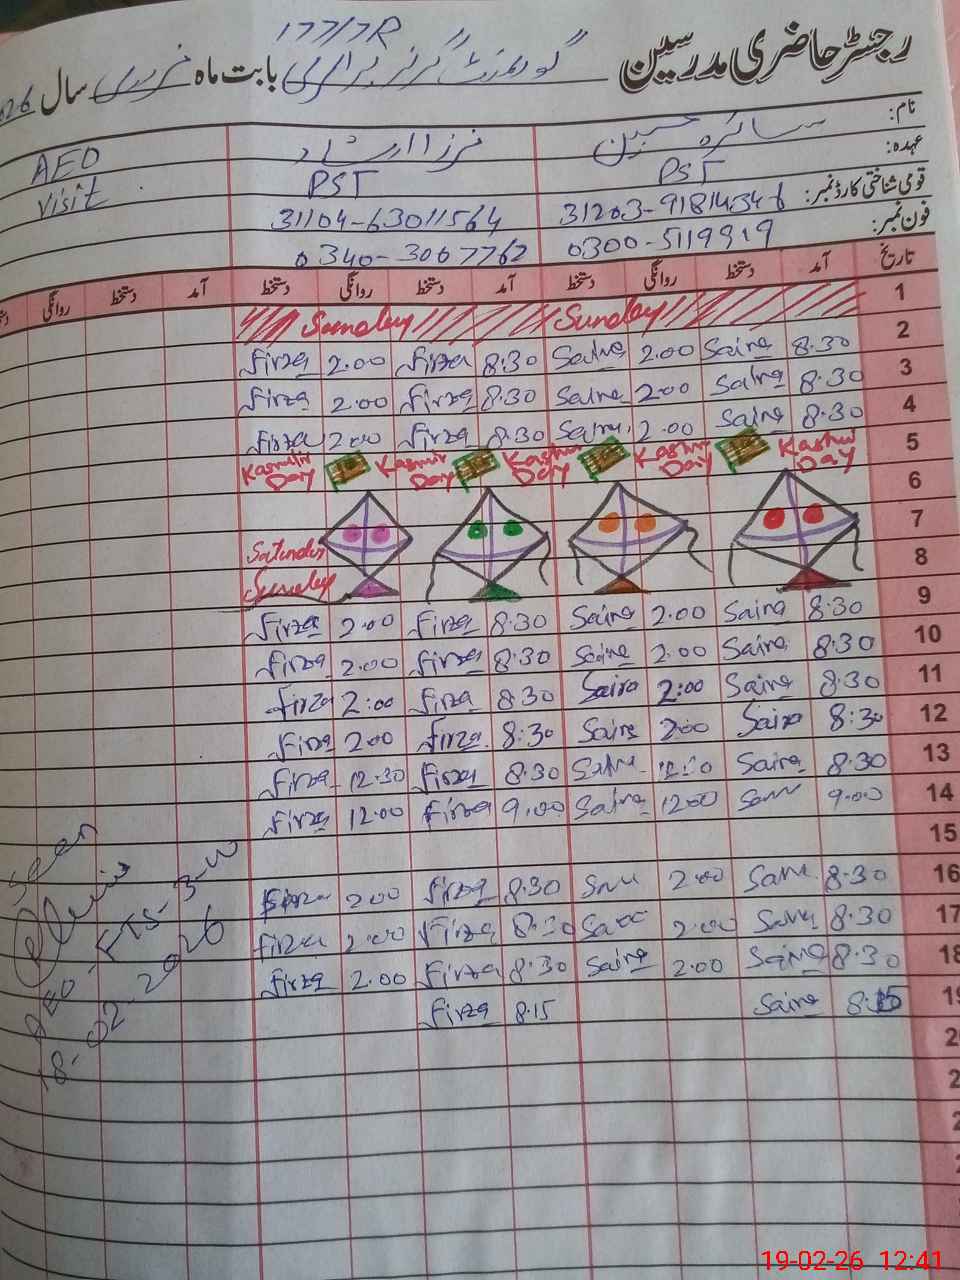 177/7R
رجسٹر حاضری مدرسین گورنمنٹ گرلز پرائمری بابت ماہ فروری سال 2026
نام: سائرہ حسین فرزا ارشاد AEO
عہدہ: PST PST Visit
قومی شناختی کارڈ نمبر: 31203-91814346 31104-63011564
فون نمبر: 0300-5119919 0340-3067762
تاریخ آمد دستخط روانگی دستخط آمد دستخط روانگی دستخط آمد دستخط روانگی
1 Sunday Sunday
2 8:30 Saira 2.00 Saira 8:30 Firza 2.00 Firza
3 8:30 Saira 2.00 Saira 8:30 Firza 2.00 Firza
4 8:30 Saira 2.00 Saira 8:30 Firza 2.00 Firza
5 Kashmir Day Kashmir Day Kashmir Day Kashmir Day Kashmir Day
6
7 Saturday
8 Sunday
9 8:30 Saira 2.00 Saira 8:30 Firza 2.00 Firza
10 8:30 Saira 2.00 Saira 8:30 Firza 2.00 Firza
11 8:30 Saira 2:00 Saira 8:30 Firza 2:00 Firza
12 8:30 Saira 2:00 Saira 8:30 Firza 2.00 Firza
13 8:30 Saira Saira 8:30 Firza 12.30 Firza
14 9.00 Saira 12.00 Saira 9.00 Firza 12.00 Firza
15
16 8:30 Saira 2.00 Saira 8:30 Firza 2.00 Firza
17 8:30 Saira 2.00 Saira 8:30 Firza 2.00 Firza
18 8:30 Saira 2.00 Saira 8:30 Firza 2.00 Firza
19 8:15 Saira 8.15 Firza
Seen
AEO-FTS-3-W
18-02-2026
19-02-26 12:41